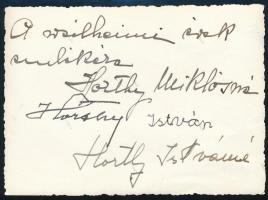 A weilheimi évek
emlékére
Horthy Miklósné
Horthy István
Horthy Istvánné